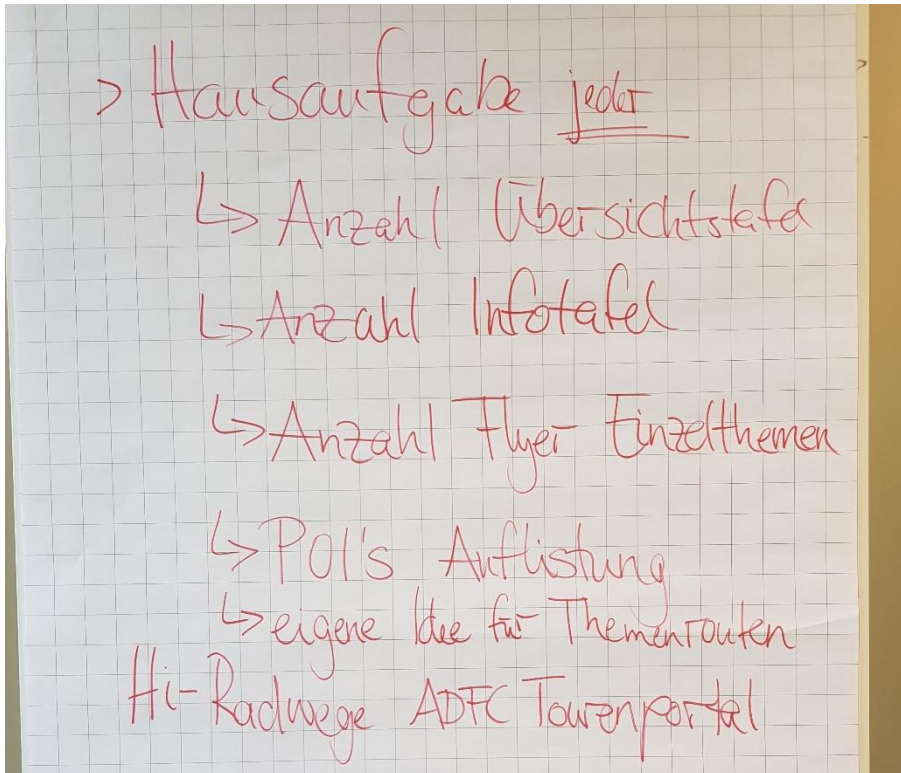 > Hausaufgabe jeder
↳ Anzahl Übersichtstafel
↳ Anzahl Infotafel
↳ Anzahl Flyer Einzelthemen
↳ POI's Auflistung
↳ eigene Idee für Themenrouten
Hi-Radwege ADFC Tourenportal